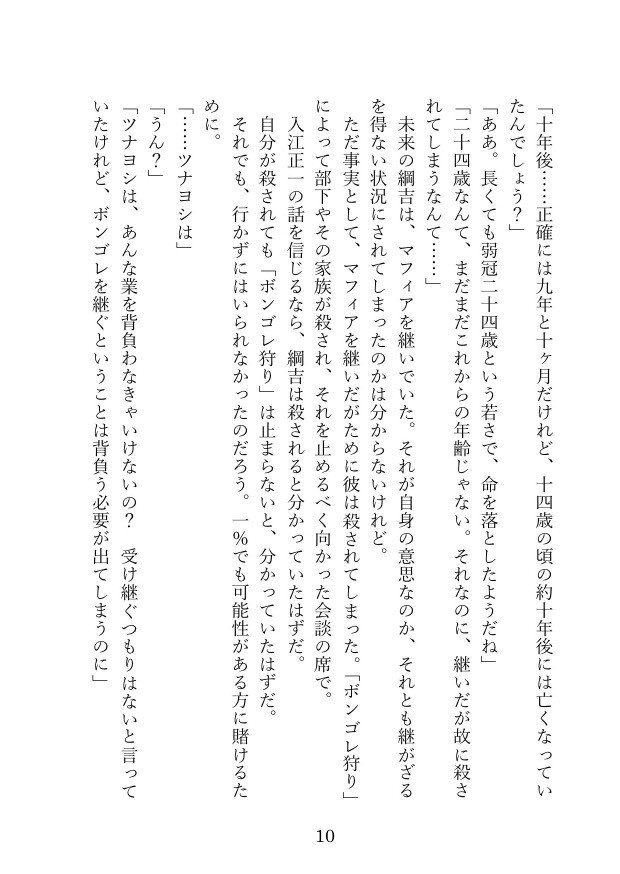 「十年後……正確には九年と十ヶ月だけれど、十四歳の頃の約十年後には亡くなってい
たんでしょう？」
「ああ。長くても弱冠二十四歳という若さで、命を落としたようだね」
「二十四歳なんて、まだまだこれからの年齢じゃない。それなのに、継いだが故に殺さ
れてしまうなんて……」
　未来の綱吉は、マフィアを継いでいた。それが自身の意思なのか、それとも継がざる
を得ない状況にされてしまったのかは分からないけれど。
　ただ事実として、マフィアを継いだがために彼は殺されてしまった。「ボンゴレ狩り」
によって部下やその家族が殺され、それを止めるべく向かった会談の席で。
　入江正一の話を信じるなら、綱吉は殺されると分かっていたはずだ。
　自分が殺されても「ボンゴレ狩り」は止まらないと、分かっていたはずだ。
　それでも、行かずにはいられなかったのだろう。一％でも可能性がある方に賭けるた
めに。
「……ツナヨシは」
「うん？」
「ツナヨシは、あんな業を背負わなきゃいけないの？　受け継ぐつもりはないと言って
いたけれど、ボンゴレを継ぐということは背負う必要が出てしまうのに」
10